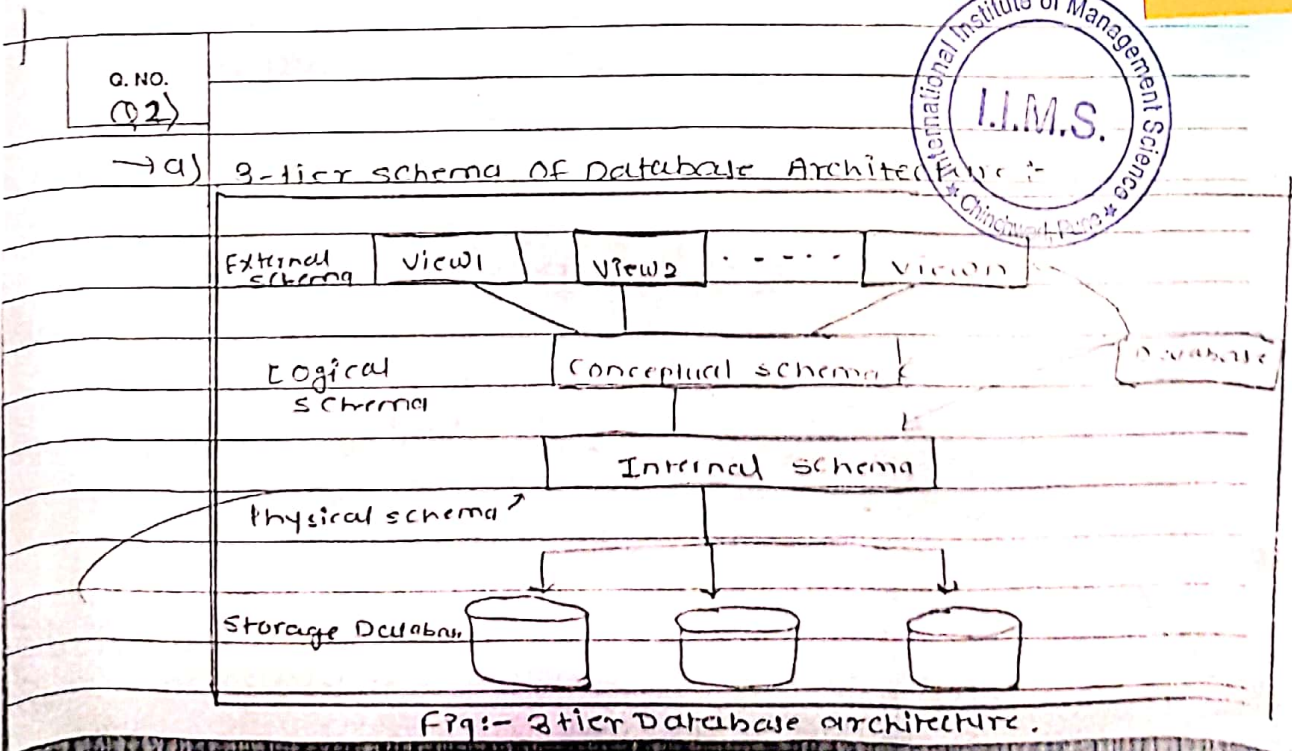 International Institute of Management Science
I.I.M.S.
Chinchwad, Pune
Q. NO.
Q2)
→ a) 3-tier schema of Database Architecture :-
External schema View1 View2 ..... View n
Logical schema Conceptual schema
Database
Internal schema
Physical schema
Storage Databas
Fig:- 3 tier Database architecture.